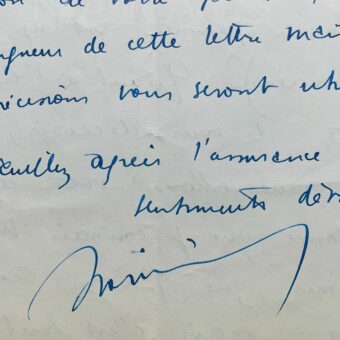 de votre
de cette lettre mai
écisions vous seront uti
euillez agréer l'assurance
sentiments dév